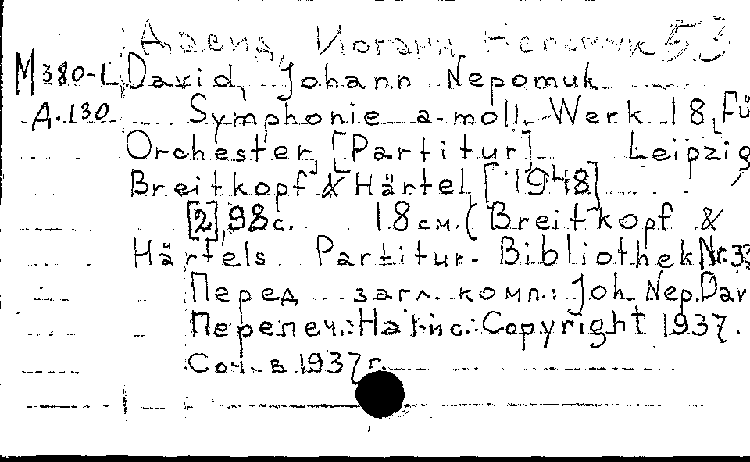 Давид, Иоганн Непомук 53
M 380-L David, Johann Nepomuk
Д.130 Symphonie a-moll. Werk 18, Fü
Orchester, [Partitur] Leipzig,
Breitkopf & Härtel, [1948]
[2], 98 с. 18 см. (Breitkopf &
Härtels Partitur-Bibliothek Nr. 33
Перед загл. комп.: Joh. Nep. Dav
Перепеч.: На тис.: Copyright 1937.
Соч. в 1937 г.